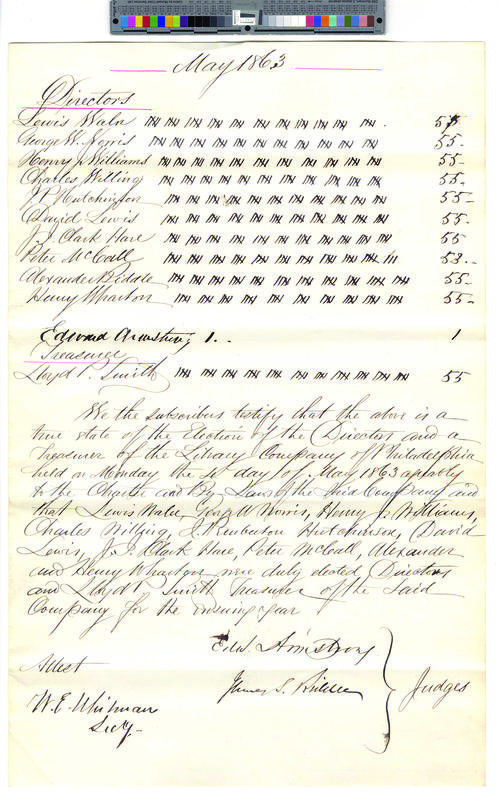 May 1863
Directors
Lewis Waln 55
George W. Norris 55-
Henry J Williams 55-
Charles Willing 55-
J. P. Hutchinson 55-
David Lewis 55.
J. I. Clark Hare 55
Peter McCall 53.-
Alexander Biddle 55-
Henry Wharton 55-
Edward Armstrong 1.. 1
Treasurer
Lloyd P. Smith 55
We the subscribers testify that the above is a
true state of the Election of the Directors and a
Treasurer of the Library Company of Philadelphia
held on Monday the day of May 1863 agreeably
to the Charter and By Laws of the said Company and
that Lewis Waln, George W Norris, Henry J. Williams,
Charles Willing, J. Pemberton Hutchinson, David
Lewis, J. I. Clark Hare, Peter McCall, Alexander
and Henry Wharton were duly elected Directors
and Lloyd P Smith Treasurer of the said
Company for the ensuing year
Edw. Armstrong
James S.
Judges
Attest
W. E. Whitman
Secy.